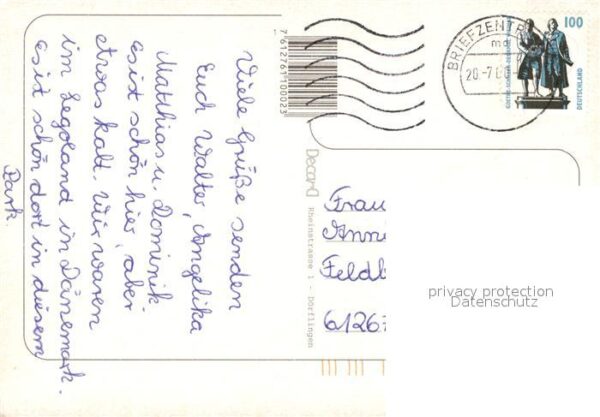 Viele Grüße senden
Euch Walter, Angelika
Matthias u. Dominik
es ist schön hier, aber
etwas kalt. Wir waren
im Legoland in Dänemark.
es ist schön dort in diesem
Park.
7612761100023
Decard
Rheinstrasse 1 - Dörflingen
BRIEFZENTR
md
20-7
100
GOETHE-SCHILLER-DENKMAL
DEUTSCHLAND
Frau
Anne
Feldb
6126
privacy protection
Datenschutz